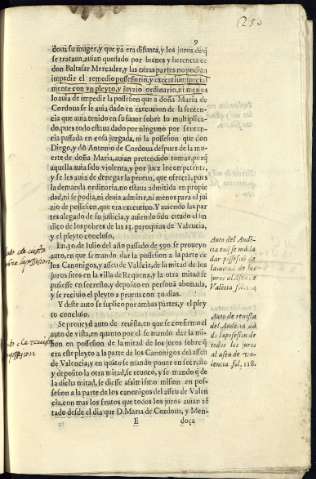 9
(250
doça su muger, y que ya era difunta, y los juros de q̃
se trataua, auian quedado por bienes y herencia de
don Baltasar Mercader, y las otras partes no podian
impedir el remedio possessorio, y executiuo
mente con vn pleyto, y juyzio ordinario, ni menos
lo auia de impedir la possession que a doña Maria de
Cordoua se le auia dado en execucion de la sentencia
que auia tenido en su fauor sobre lo multiplicado,
pues todo estaua dado por ninguno por sentencia
passada en cosa juzgada, ni la possession que don
Diego, y dõ Antonio de Cordoua despues de la muerte
de doña Maria, auian pretendido tomar, porq̃
aquella auia sido violenta, y por juez incompetente,
y se les auia de denegar la prueua, que ofrecia, para
la demanda ordinaria, no estaua admitida en propiedad,
ni se podia, ni deuia admitir, ni menos para el juizio
de possession que era executiuo. Y auiendo las partes
alegado de su justicia, y auiendo sido citado el sindico
de los pobres de las 13. parroquias de Valencia,
y el pleyto concluso.
En 30 de Iulio del año passado de 590. se proueyo
auto, en que se mando dar la possession a la parte de
los Canonigos, y asseu de Valēcia, de la mitad de los
juros sitos en la villa de Requena, y la otra mitad se
pusiesse en secresto, y deposito en persona abonada,
y se recibio el pleyto a prueua con 20 dias.
Y deste auto se suplico por ambas partes, y el pleyto
concluso.
Se proueyò auto de reuista en que se confirmò el
auto de vista, en quanto por el se mandò dar la mission
en possession de la mitad de los juros sobre q̃
era este pleyto a la parte de los Canonigos del asseu
de Valencia, y en quāto se mandò poner en secresto,
y deposito la otra mitad, se reuocò, y se mandò q̃ de
la dicha mitad, se diesse assi mismo mission en possession
a la parte de los canonigos del asseu de Valencia,
con mas los frutos que todos los juros auian rētado
desde el dia que D. Maria de Cordoua, y Men-
E
doça
Auto del Audiēcia
Valēcia
Auto de reuista
del Audiēcia
de la possession de
todos los juros
al asseu de Valencia
fol. 118.